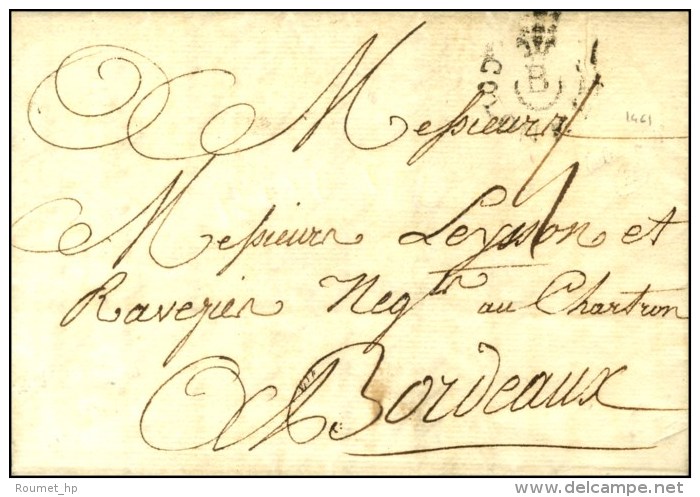 Messieurs
B
1461
Messieurs Leysson et
Raverien Neg^ts au Chartron
A Bordeaux
Roumet_hp
www.delcampe.net